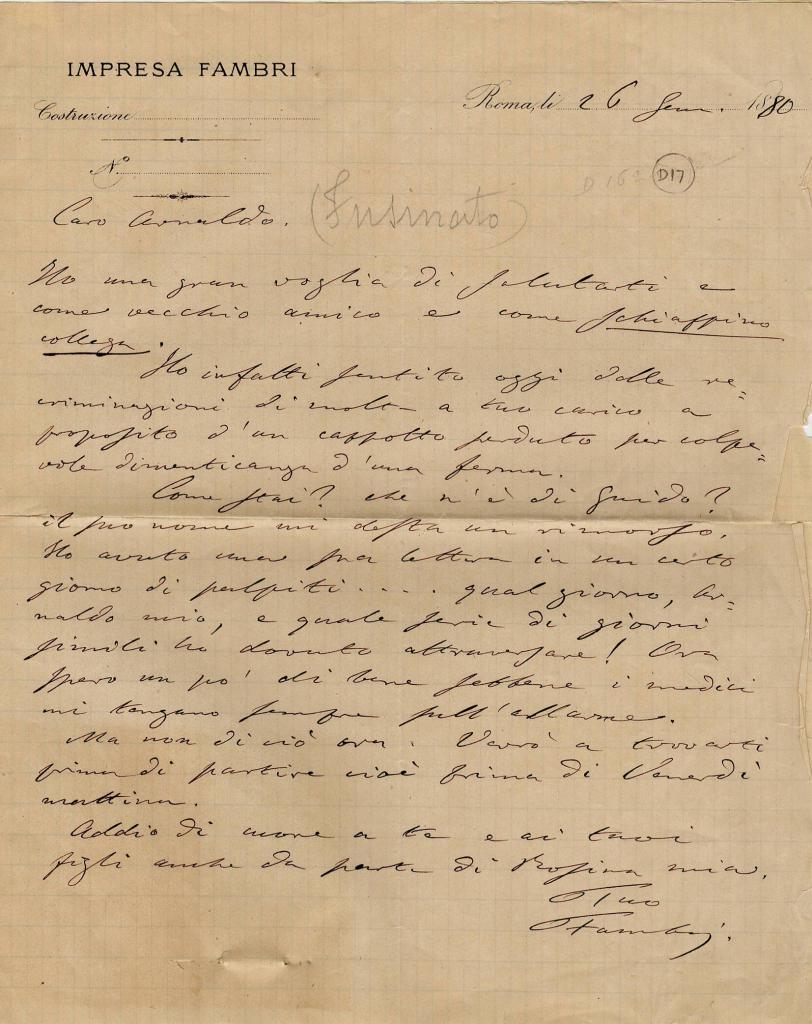 IMPRESA FAMBRI
Roma, li 26 Genn. 1880
Costruzione
N.º
D 16
D17
Caro Arnaldo.
(Fusinato)
Ho una gran voglia di salutarti e
come vecchio amico e come schiaffino
collega.
Ho infatti sentito oggi delle re=
criminazioni di molti a tuo carico a
proposito d'un cappotto perduto per colpe=
vole dimenticanza d'una ferma.
Come stai? che n'è di Guido?
il suo nome mi desta un rimorso.
Ho avuto una sua lettera in un certo
giorno di palpiti.... qual giorno, Ar=
naldo mio, e quale serie di giorni
simili ho dovuto attraversare! Ora
spero un po' di bene sebbene i medici
mi tengano sempre sull'allarme.
Ma non di ciò ora. Verrò a trovarti
prima di partire cioè prima di Venerdì
mattina.
Addio di cuore a te e ai tuoi
figli anche da parte di Rosina mia.
Tuo
Fambri.